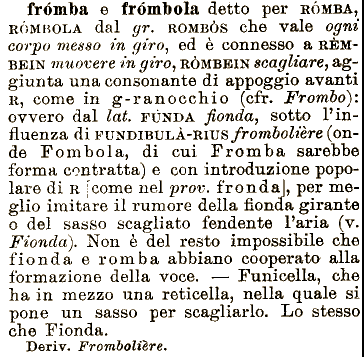 frómba e frómbola detto per RÓMBA,
RÓMBOLA dal gr. ROMBÒS che vale ogni
corpo messo in giro, ed è connesso a RÈM-
BEIN muovere in giro, RÒMBEIN scagliare, ag-
giunta una consonante di appoggio avanti
R, come in g-ranocchio (cfr. Frombo):
ovvero dal lat. FÚNDA fionda, sotto l'in-
fluenza di FUNDIBULÀ-RIUS frombolière (on-
de Fombola, di cui Fromba sarebbe
forma contratta) e con introduzione popo-
lare di R [come nel prov. fronda], per me-
glio imitare il rumore della fionda girante
o del sasso scagliato fendente l'aria (v.
Fionda). Non è del resto impossibile che
fionda e romba abbiano cooperato alla
formazione della voce. — Funicella, che
ha in mezzo una reticella, nella quale si
pone un sasso per scagliarlo. Lo stesso
che Fionda.
Deriv. Frombolière.